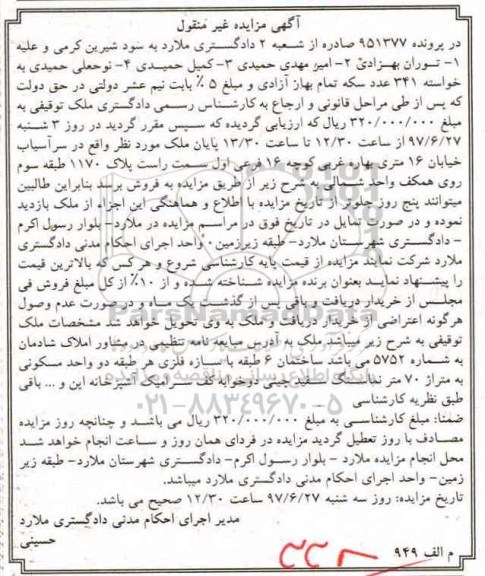 آگهی مزایده غیر منقول
در پرونده ۹۵۱۳۷۷ صادره از شعبه ۲ دادگستری ملارد به سود شیرین کرمی و علیه
۱- توران بهزادی ۲- امیر مهدی حمیدی ۳-کمیل حمیدی ۴- نوحعلی حمیدی به
خواسته ۳۴۱ عدد سکه تمام بهار آزادی و مبلغ ۵ ٪ بابت نیم عشر دولتی در حق دولت
که پس از طی مراحل قانونی و ارجاع به کارشناس رسمی دادگستری ملک توقیفی به
مبلغ ۳۲۰/۰۰۰/۰۰۰ ریال که ارزیابی گردیده که سپس مقرر گردید در روز ۳ شنبه
۹۷/۶/۲۷ از ساعت ۱۲/۳۰ تا ساعت ۱۳/۳۰ پایان ملک مورد نظر واقع در سرآسیاب
خیابان ۱۶ متری بهاره غربی کوچه ۱۶ فرعی اول سمت راست پلاک ۱۱۷۰ طبقه سوم
روی همکف واحد شمالی به شرح زیر از طریق مزایده به فروش برسد بنابراین طالبین
میتوانند پنج روز جلوتر از تاریخ مزایده با اطلاع و هماهنگی این اجراء از ملک بازدید
نموده و در صورت تمایل در تاریخ فوق در مراسم مزایده در ملارد- بلوار رسول اکرم
- دادگستری شهرستان ملارد- طبقه زیرزمین- واحد اجرای احکام مدنی دادگستری
ملارد شرکت نمایند مزایده از قیمت پایه کارشناسی شروع و هر کس که بالاترین قیمت
را پیشنهاد نماید بعنوان برنده مزایده شناخته شده و از ۱۰٪ از کل مبلغ فروش فی
مجلس از خریدار دریافت و باقی پس از گذشت یک ماه و در صورت عدم وصول
هرگونه اعتراضی از خریدار دریافت و ملک به وی تحویل خواهد شد مشخصات ملک
توقیفی به شرح زیر میباشد ملک به آدرس مبایعه نامه تنظیمی در مشاور املاک شادمان
به شماره ۵۷۵۲ می باشد ساختمان ۶ طبقه با سازه فلزی هر طبقه دو واحد مسکونی
به متراژ ۷۰ متر نماسنگ سفید چینی دوخوابه کف سرامیک آشپزخانه اپن و ... باقی
طبق نظریه کارشناسی
ضمنا: مبلغ کارشناسی به مبلغ ۳۲۰/۰۰۰/۰۰۰ ریال می باشد و چنانچه روز مزایده
مصادف با روز تعطیل گردید مزایده در فردای همان روز و ساعت انجام خواهد شد
محل انجام مزایده ملارد - بلوار رسول اکرم- دادگستری شهرستان ملارد- طبقه زیر
زمین- واحد اجرای احکام مدنی دادگستری ملارد میباشد.
تاریخ مزایده: روز سه شنبه ۹۷/۶/۲۷ ساعت ۱۲/۳۰ صحیح می باشد.
مدیر اجرای احکام مدنی دادگستری ملارد
حسینی
م الف ۹۴۹
ParsNamadData
۰۲۱-۸۸۳۴۹۶۷۰-۵